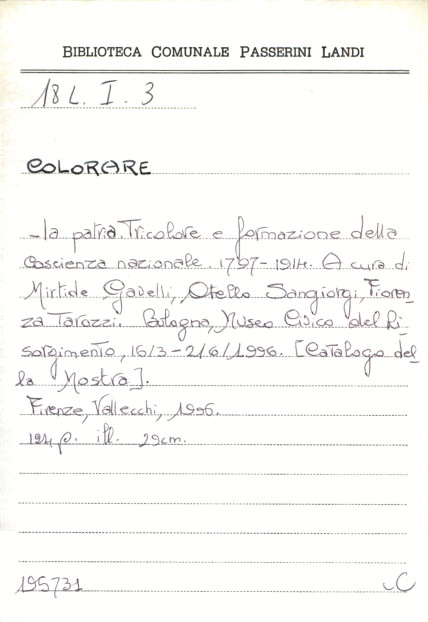 BIBLIOTECA COMUNALE PASSERINI LANDI
18 L. I. 3
COLORARE
- la patria. Tricolore e formazione della
coscienza nazionale. 1797-1914. A cura di
Mirtide Gavelli, Otello Sangiorgi, Fioren-
za Tarozzi. Bologna, Museo Civico del Ri-
sorgimento, 16/3-2/6/1996. [Catalogo del-
la Mostra].
Firenze, Vallecchi, 1996.
194 p. ill. 29 cm.
195731
C